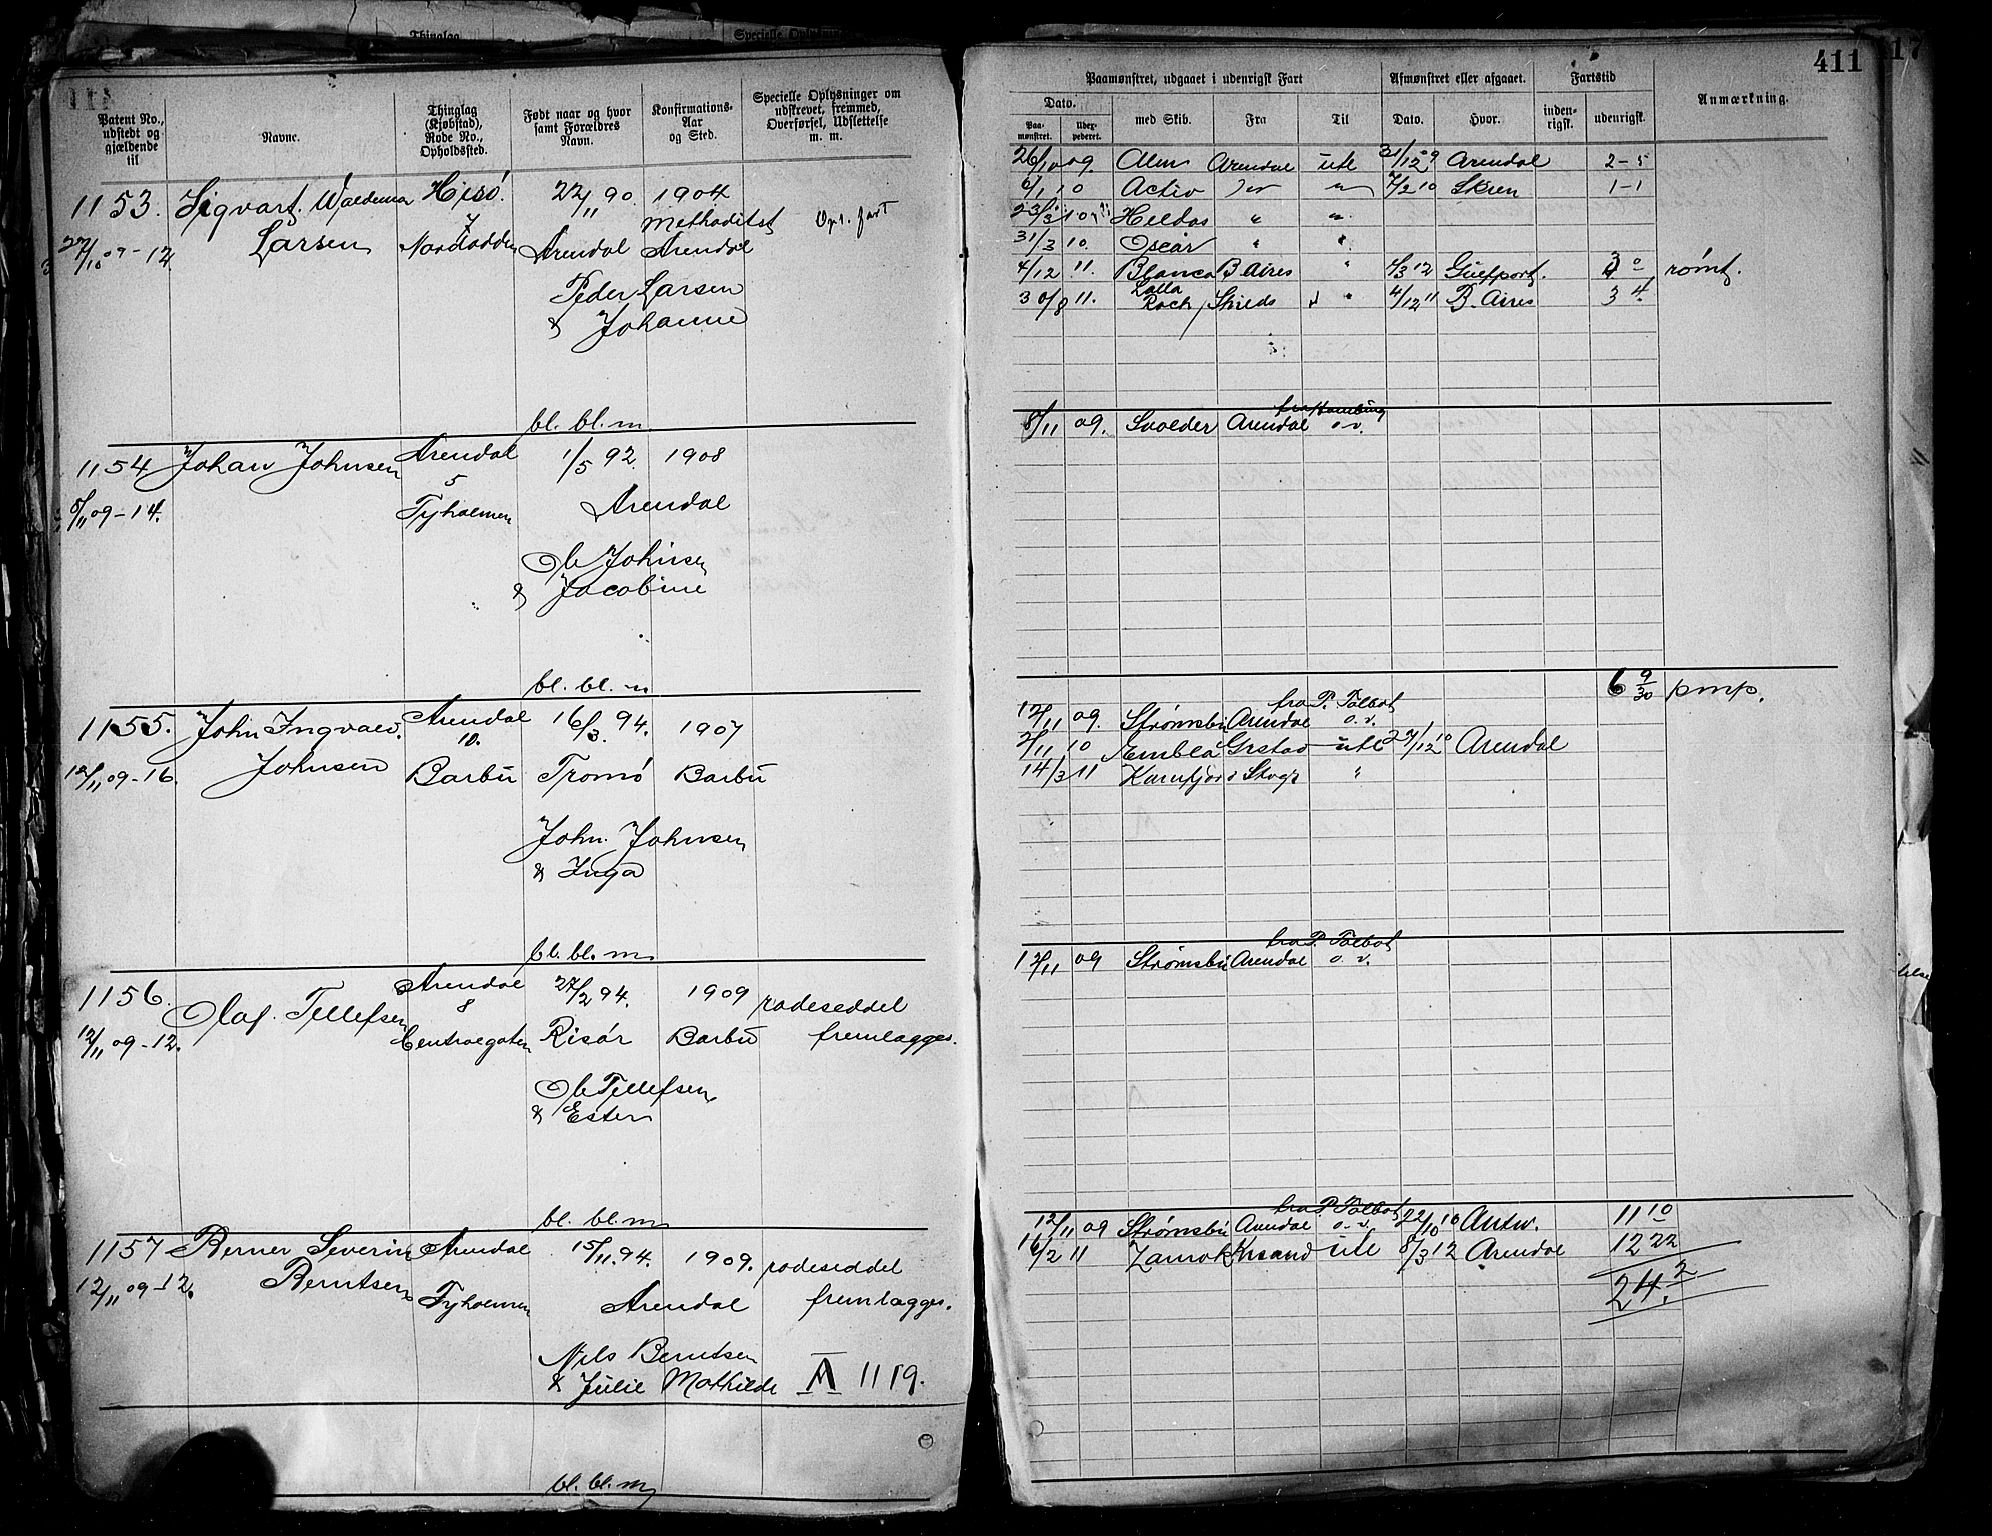 411
Patent No., udstedt og gjældende til
Navne.
Thinglag (Kjøbstad), Rode No., Opholdssted.
Født naar og hvor samt Forældres Navn.
Konfirmations-Aar og Sted.
Specielle Oplysninger om udskrevet, fremmed, Overførsel, Udslettelse m. m.
Paamønstret, udgaaet i udenrigsk Fart
Afmønstret eller afgaaet.
Fartstid
Anmærkning.
Dato.
Paa-mønstret.
Udex-pederet.
med Skib.
Fra
Til
Dato.
Hvor.
inden-rigsk.
udenrigsk.
1153. Sigvart. Waldemar Hisö. 22/11 90. 1904
7 Methodist
27/10 09-12. Larsen Arendal Arendal
Peder Larsen
& Johanne
bl. bl. m
26/10 09. Alm Arendal utl 31/12 09 Arendal 2-5
6/1 10 Activ 7/2 10 1-1
Heldos " "
31/3 10. Oscar " "
4/12 11. Blanca B Aires " 4/3 12 Gulfport. rømt.
30/8 11. Lalla Rock Shields " 4/12 11 B. Aires 3 4
1154 Johan Johnsen Arendal 1/5 92. 1908
5
8/11 09-14. Tyholmen Arendal
Ole Johnsen
& Jacobine
bl. bl. m
fra Hamburg
8/11 09. Svolder Arendal o.v.
1155. John Ingvald. Arendal 16/3 94. 1907
10.
12/11 09-16. Johnsen Barbu Tromö Barbu
John. Johnsen
& Inga
bl. bl. m
6 9/30 pmp.
fra P. Talbot
12/11 09. Strømsbu Arendal o.v.
2/11 10 Embla Grstad utl 27/12 10 Arendal
14/3 11
1156. Olaf. Tellefsen Arendal 27/2 94. 1909 rodeseddel
8
12/11 09-12. Centralgaten Risör Barbu fremlægges.
Ole Tellefsen
& Ester
bl. bl. m
fra P. Talbot
12/11 09 Strømsbu Arendal o.v.
1157 Berner Severin Arendal 15/11 94. 1909. rodeseddel
12/11 09-12. Berntsen Tyholmen Arendal fremlægges.
Nils Berntsen
& Julie Mathilde A 1119.
bl. bl. m
fra P. Talbot
12/11 09 Strømsbu Arendal o.v. 22/10 10 Antw. 11 10
16/2 11 Krsand utl 8/3 12 Arendal 12 22
24. 2